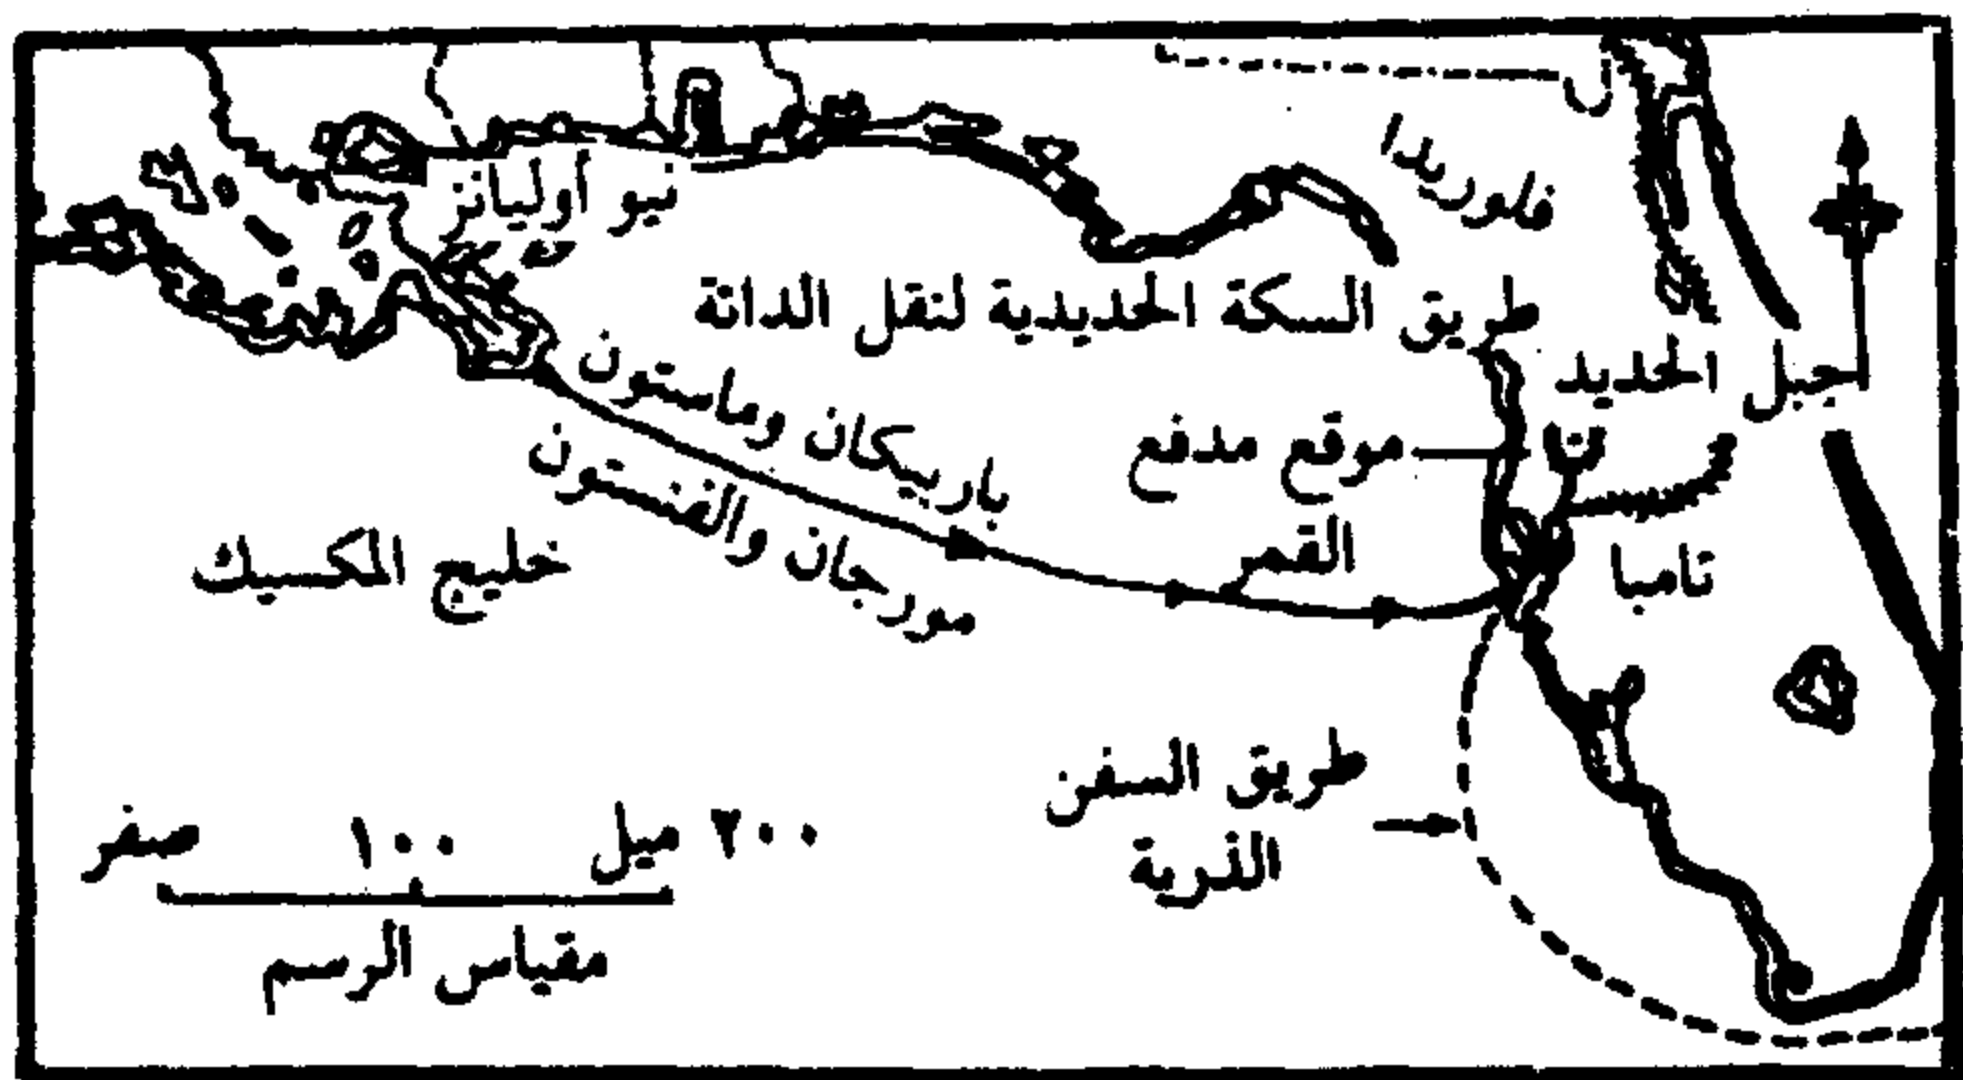 فلوريدا
نيو أوليانز
طريق السكة الحديدية لنقل الدانة
جبل الحديد
باربيكان وماستون
مورجان والفنستون
موقع مدفع
القمر
تامبا
خليج المكسيك
طريق السفن
الذرية
صفر ١٠٠ ٢٠٠ ميل
مقياس الرسم